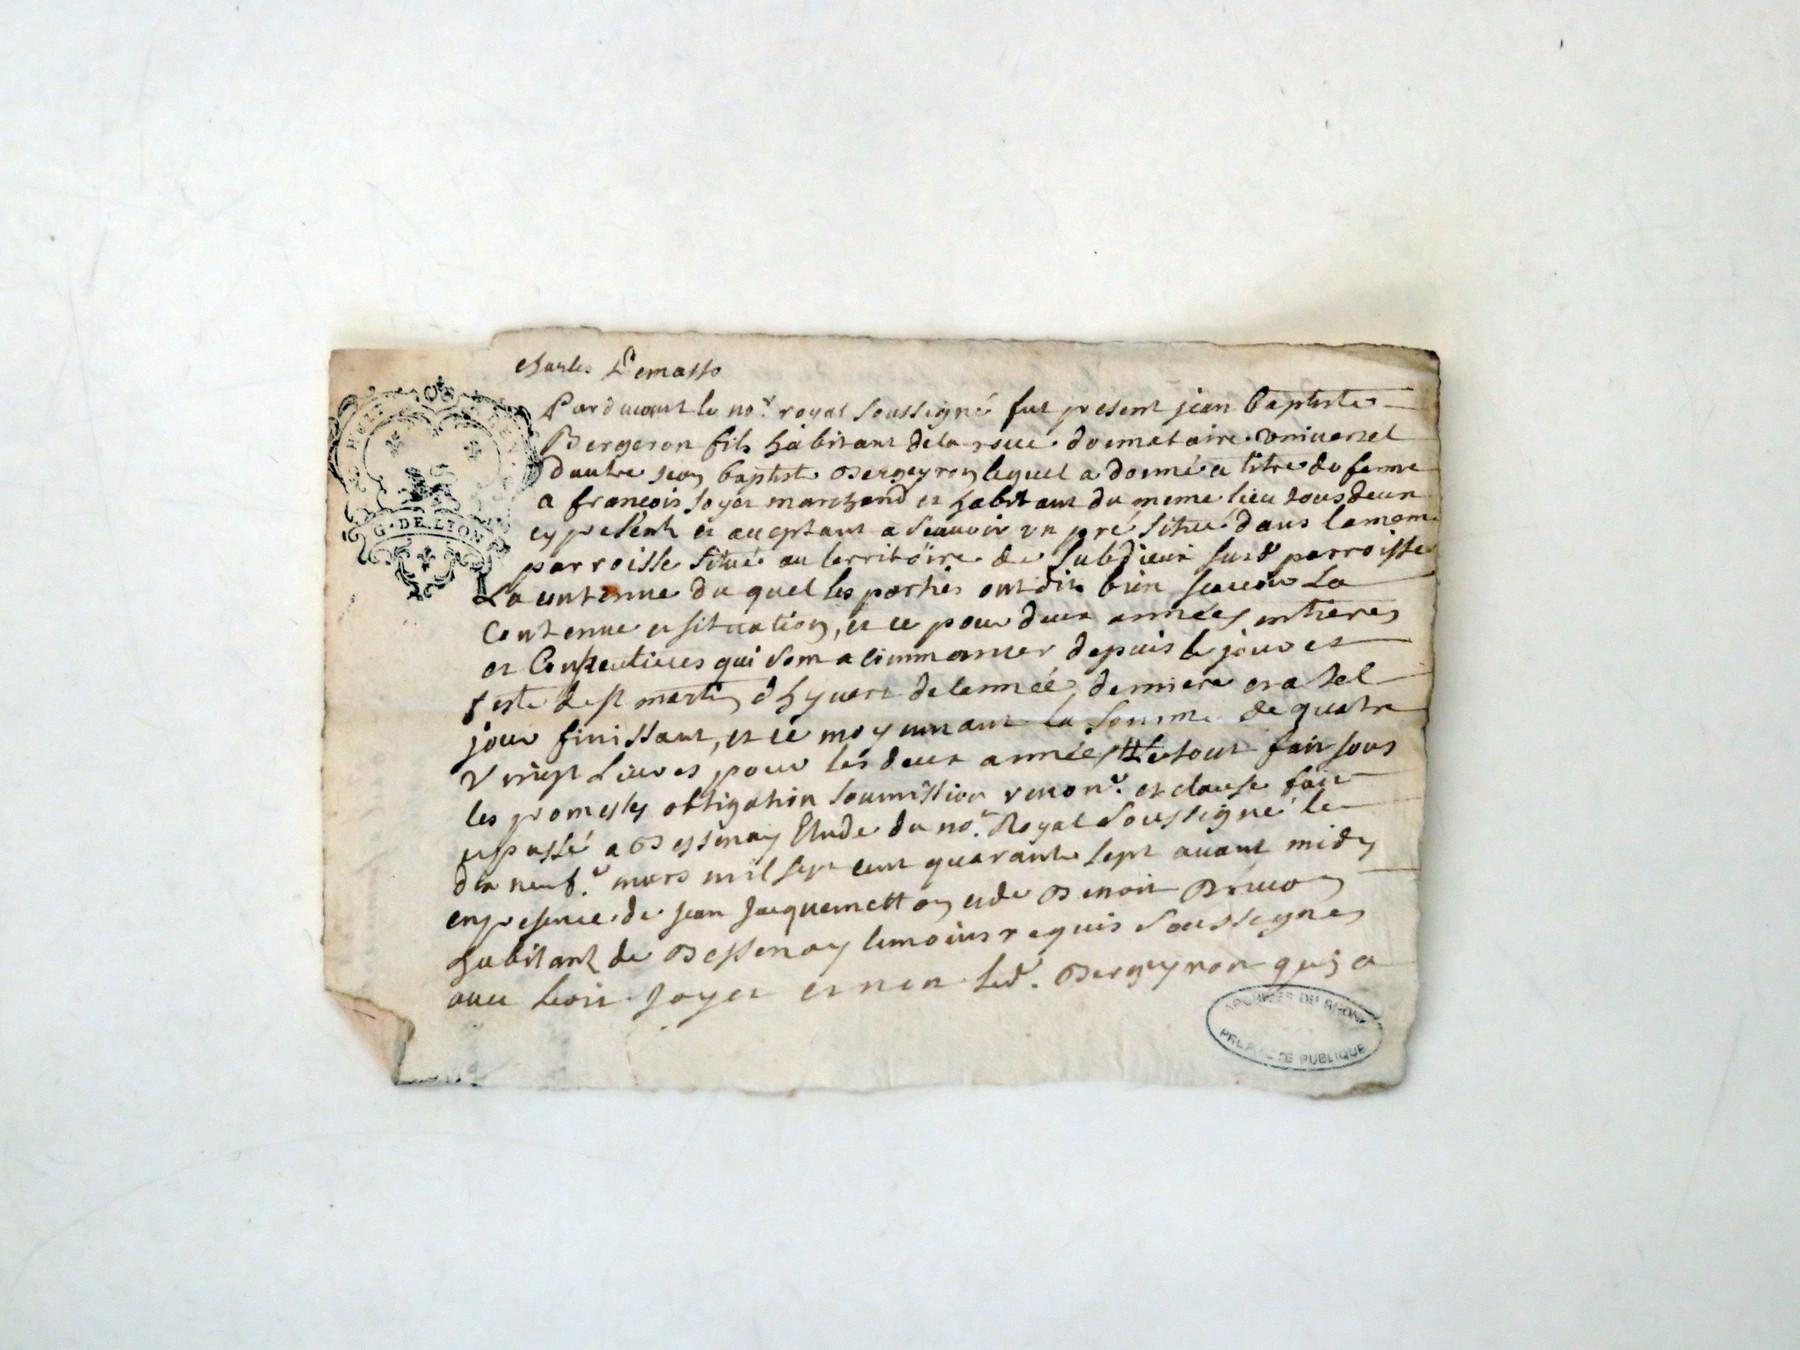 charles Lemasso
Pardevant le no.re royal soussigné fut present jean baptiste
Bergeron fils habitant de la roue donnataire universel
dautre jean baptiste Bergeyron lequel a donné a titre de ferme
a françois Joyet marchand et habitant du meme lieu tous deux
cy presents et aceptant a scauoir un pré situé dans la meme
parroisse situé au territoire de susd parroisse
La contenue du quel les parties ont dit bien scauoir La
Contenue et situation, et ce pour deux années entieres
et Consecutiues qui sont a commancer depuis le jour et
feste de st martin dhyuert de lannée derniere et a tel
jour finissant, et ce moyennant la somme de quatre
Vingt Liures pour les deux années Le tout fait sous
les promesses obligation soumission renon.on et clause fait
et passé a Bessenay Etude du no.re Royal soussigné le
dix neuf.e mars mil sept cent quarante sept auant midy
en presence de jean Jacquemetton et de Benoit
habitants de Bessenay temoins requis soussignes
auec Joyet et non led. Bergeyron qui a
G. DE LYON
ARCHIVES DU RHONE
PUBLIQUE